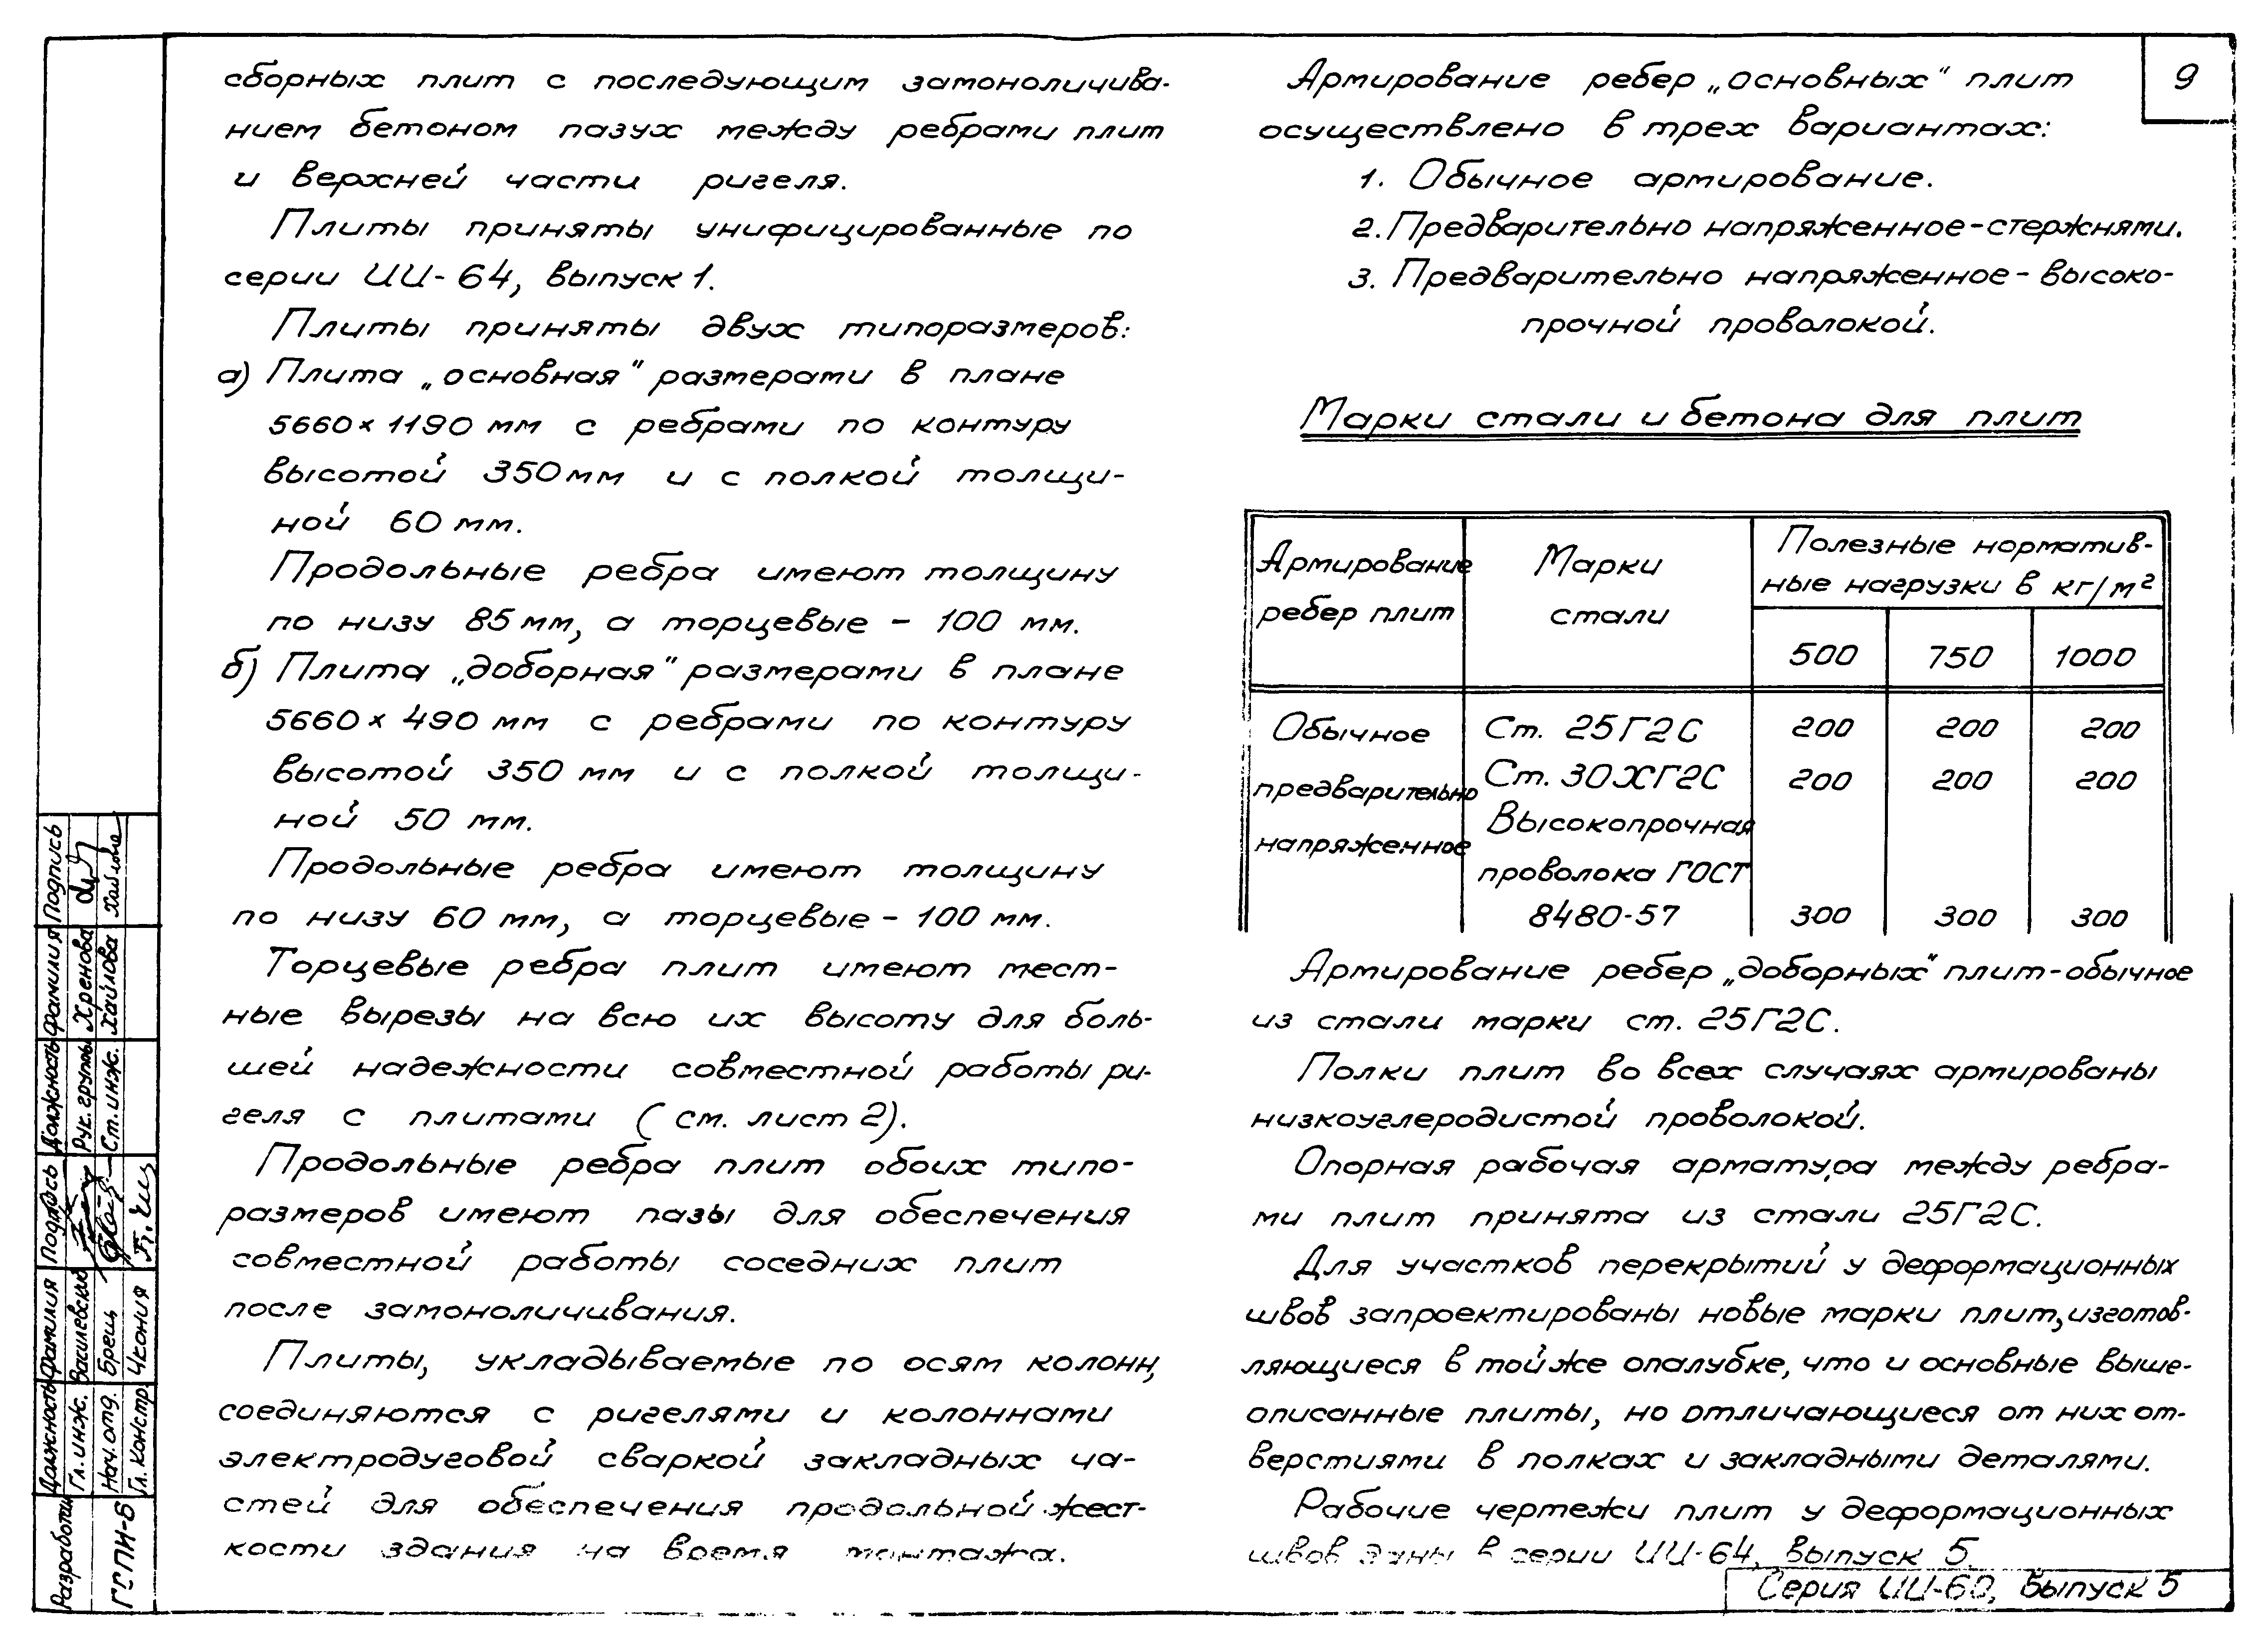 9
сборных плит с последующим замоноличива-
нием бетоном пазух между ребрами плит
и верхней части ригеля.
Плиты приняты унифицированные по
серии ИИ-64, выпуск 1.
Плиты приняты двух типоразмеров:
а) Плита „основная" размерами в плане
5660×1190 мм с ребрами по контуру
высотой 350 мм и с полкой толщи-
ной 60 мм.
Продольные ребра имеют толщину
по низу 85 мм, а торцевые - 100 мм.
б) Плита „доборная" размерами в плане
5660×490 мм с ребрами по контуру
высотой 350 мм и с полкой толщи-
ной 50 мм.
Продольные ребра имеют толщину
по низу 60 мм, а торцевые - 100 мм.
Торцевые ребра плит имеют мест-
ные вырезы на всю их высоту для боль-
шей надежности совместной работы ри-
геля с плитами (см. лист 2).
Продольные ребра плит обоих типо-
размеров имеют пазы для обеспечения
совместной работы соседних плит
после замоноличивания.
Плиты, укладываемые по осям колонн,
соединяются с ригелями и колоннами
электродуговой сваркой закладных ча-
стей для обеспечения продольной жест-
кости здания на время монтажа.
Армирование ребер „основных" плит
осуществлено в трех вариантах:
1. Обычное армирование.
2. Предварительно напряженное-стержнями.
3. Предварительно напряженное-высоко-
прочной проволокой.
Марки стали и бетона для плит
Армирование ребер плит
Марки стали
Полезные норматив-
ные нагрузки в кг/м²
500 750 1000
Обычное Ст. 25Г2С 200 200 200
предварительно Ст. 30ХГ2С 200 200 200
напряженное Высокопрочная
проволока ГОСТ
8480-57 300 300 300
Армирование ребер „доборных" плит-обычное
из стали марки ст. 25Г2С.
Полки плит во всех случаях армированы
низкоуглеродистой проволокой.
Опорная рабочая арматура между ребра-
ми плит принята из стали 25Г2С.
Для участков перекрытий у деформационных
швов запроектированы новые марки плит, изготов-
ляющиеся в той же опалубке, что и основные выше-
описанные плиты, но отличающиеся от них от-
верстиями в полках и закладными деталями.
Рабочие чертежи плит у деформационных
швов даны в серии ИИ-64, выпуск 5.
Серия ИИ-60, Выпуск 5
Должность Фамилия Подпись Должность Фамилия Подпись
Гл. инж. Рук. группы Хренова
Нач. отд. Брещь Ст. инж. Хайлова
Гл. констр. Чкония